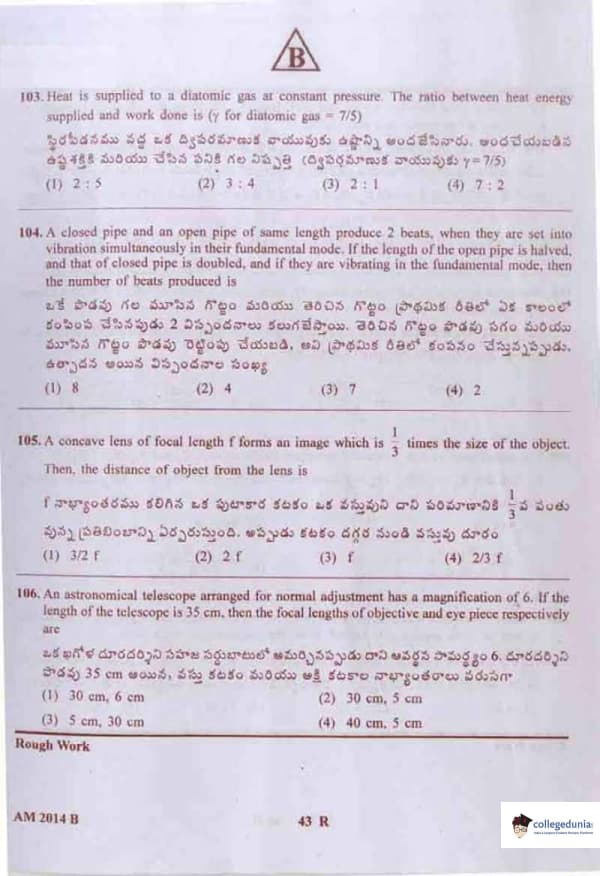 B
103. Heat is supplied to a diatomic gas at constant pressure. The ratio between heat energy
supplied and work done is (γ for diatomic gas = 7/5)
స్థిరపీడనము వద్ద ఒక ద్విపరమాణుక వాయువుకు ఉష్ణాన్ని అందజేసినారు. అందచేయబడిన
ఉష్ణశక్తికి మరియు చేసిన పనికి గల నిష్పత్తి (ద్విపరమాణుక వాయువుకు γ=7/5)
(1) 2 : 5 (2) 3 : 4 (3) 2 : 1 (4) 7 : 2
104. A closed pipe and an open pipe of same length produce 2 beats, when they are set into
vibration simultaneously in their fundamental mode. If the length of the open pipe is halved,
and that of closed pipe is doubled, and if they are vibrating in the fundamental mode, then
the number of beats produced is
ఒకే పొడవు గల మూసిన గొట్టం మరియు తెరిచిన గొట్టం ప్రాథమిక రీతిలో ఏక కాలంలో
కంపింప చేసినపుడు 2 విస్పందనాలు కలుగజేస్తాయి. తెరిచిన గొట్టం పొడవు సగం మరియు
మూసిన గొట్టం పొడవు రెట్టింపు చేయబడి, అవి ప్రాథమిక రీతిలో కంపనం చేస్తున్నప్పుడు,
ఉత్పాదన అయిన విస్పందనాల సంఖ్య
(1) 8 (2) 4 (3) 7 (4) 2
105. A concave lens of focal length f forms an image which is 1/3 times the size of the object.
Then, the distance of object from the lens is
f నాభ్యాంతరము కలిగిన ఒక పుటాకార కటకం ఒక వస్తువుని దాని పరిమాణానికి 1/3 వ వంతు
వున్న ప్రతిబింబాన్ని ఏర్పరుస్తుంది. అప్పుడు కటకం దగ్గర నుండి వస్తువు దూరం
(1) 3/2 f (2) 2 f (3) f (4) 2/3 f
106. An astronomical telescope arranged for normal adjustment has a magnification of 6. If the
length of the telescope is 35 cm, then the focal lengths of objective and eye piece respectively
are
ఒక ఖగోళ దూరదర్శిని సహజ సర్దుబాటులో అమర్చినప్పుడు దాని ఆవర్థన సామర్థ్యం 6. దూరదర్శిని
పొడవు 35 cm అయిన, వస్తు కటకం మరియు అక్షి కటకాల నాభ్యాంతరాలు వరుసగా
(1) 30 cm, 6 cm (2) 30 cm, 5 cm
(3) 5 cm, 30 cm (4) 40 cm, 5 cm
Rough Work
AM 2014 B 43 R
collegedunia